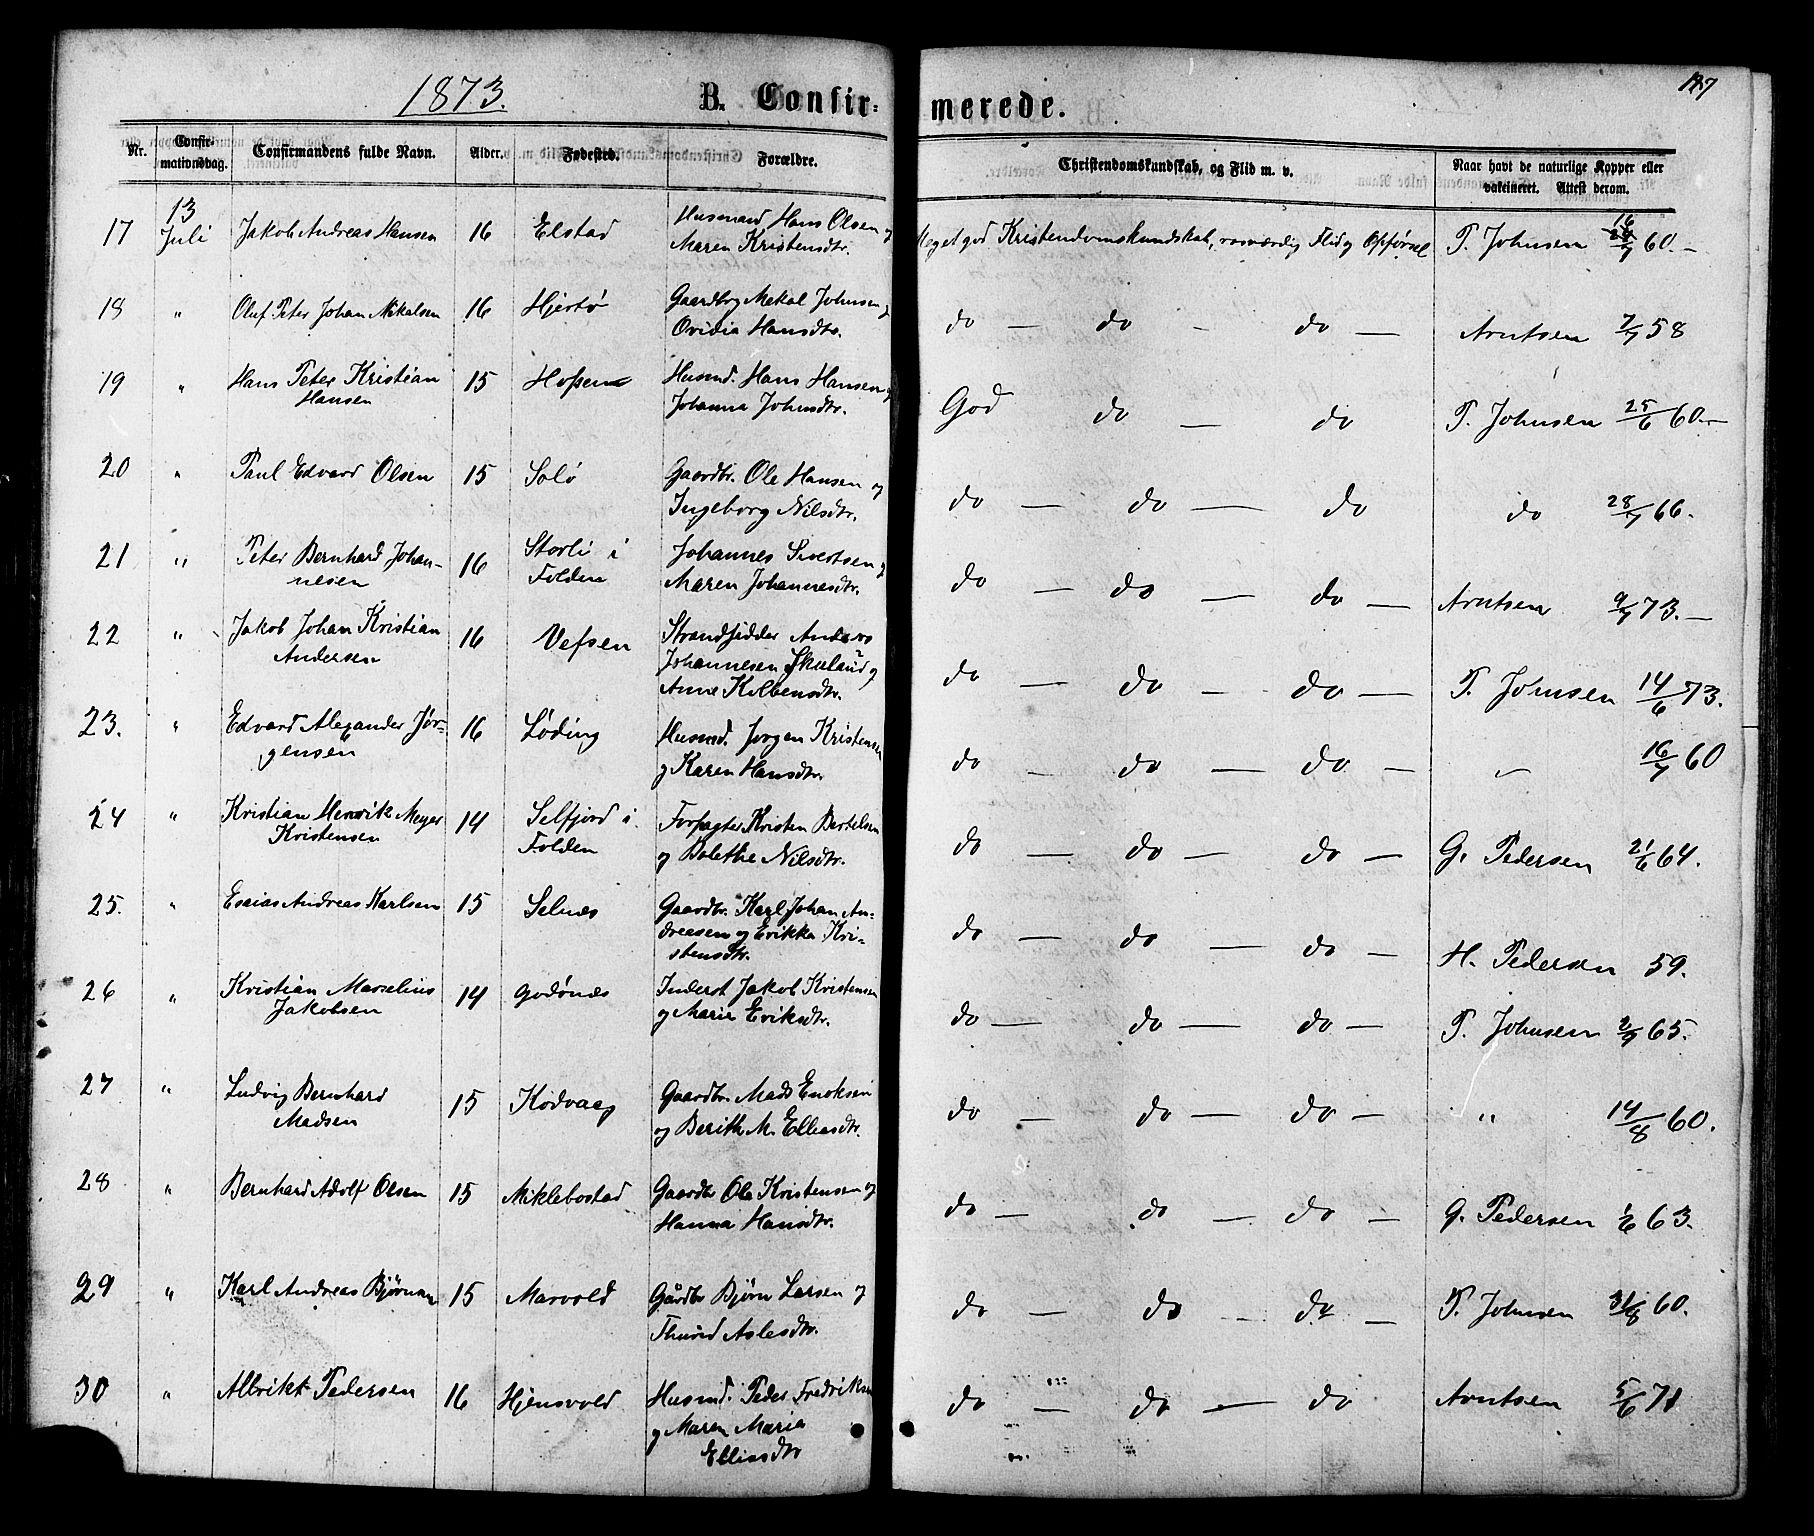 1873. B. Confir- merede. 127
Nr. Confirmationsdag. Confirmandens fulde Navn. Alder. Fødested. Forældre. Christendomskundskab, og Flid m. v. Naar havt de naturlige Kopper eller vakcineret. Attest derom.
17 13 Juli Jakob Andreas Hansen 16 Elstad Husmand Hans Olsen og Maren Kristensdtr. Meget god Kristendomskundskab, rosværdig Flid og Opførsel T. Johnsen 60.—
18 " Oluf Peter Johan Mikalsen 16 Hjertø Gaardbrg Mekal Johnsen og Ovidia Hansdtr. do — do - do — Arntsen 7/7 58
19 " Hans Peter Kristian Hansen 15 Hopen Husmd. Hans Hansen og Johanna Johnsdtr. God do — do T. Johnsen 25/6 60.—
20 " Paul Edvard Olsen 15 Salø Gaardbr. Ole Hansen og Ingeborg Nilsdtr. do — do — do do 28/7 66.
21 " Peter Bernhard Johannesen 16 Storli i Folden Johannes Sivertsen og Maren Johannesdtr. do — do — do — Arntsen 9/7 73.—
22 " Jakob Johan Kristian Andersen 16 Vefsen Strandsidder Anders Johannesen og Anne Kolbensdtr. do — do — do — T. Johnsen 14/6 73.
23. " Edvard Alexander Jørgensen 16 Løding Husmd. Jørgen Kristensen og Karen Hansdtr. do — do — do — " 16/7 60
24 " Kristian Henrik Meyer Kristensen 14 Selfjord i Folden Forpagter Kristen Bertelsen og Bolethe Nilsdtr. do — do — do — G. Pedersen 21/6 64.
25. " Esaias Andreas Karlsen 15 Selnes Gaardbr. Karl Johan Andreesen og Erikka Kristensdtr. do — do — do — H. Pedersen 59.
26 " Kristian Marselius Jakobsen 14 Godønes Inderst Jakob Kristensen og Marie Eriksdtr. do — do — do — T. Johnsen 2/7 65.
27 " Ludvig Bernhard Madsen 15 Kodvaag Gaardbr. Mads Enoksen og Berith M. Elliasdtr. do — do — do — " 14/8 60.
28 " Bernhard Adolf Olsen 15 Miklebostad Gaardbr Ole Kristensen og Hanna Hansdtr. do — do — do — G. Pedersen 1/6 63.
29 " Karl Andreas Bjørnsen 15 Marvold Gårdbr Bjørn Larsen og Thurid Aslesdtr. do — do — do — T. Johnsen 31/8 60.
30 " Albrikt Pedersen 16 Hjemsvold Husmd. Peder Fredriksen og Maren Marie Elliasdtr do — do — do Arntsen 5/6 71